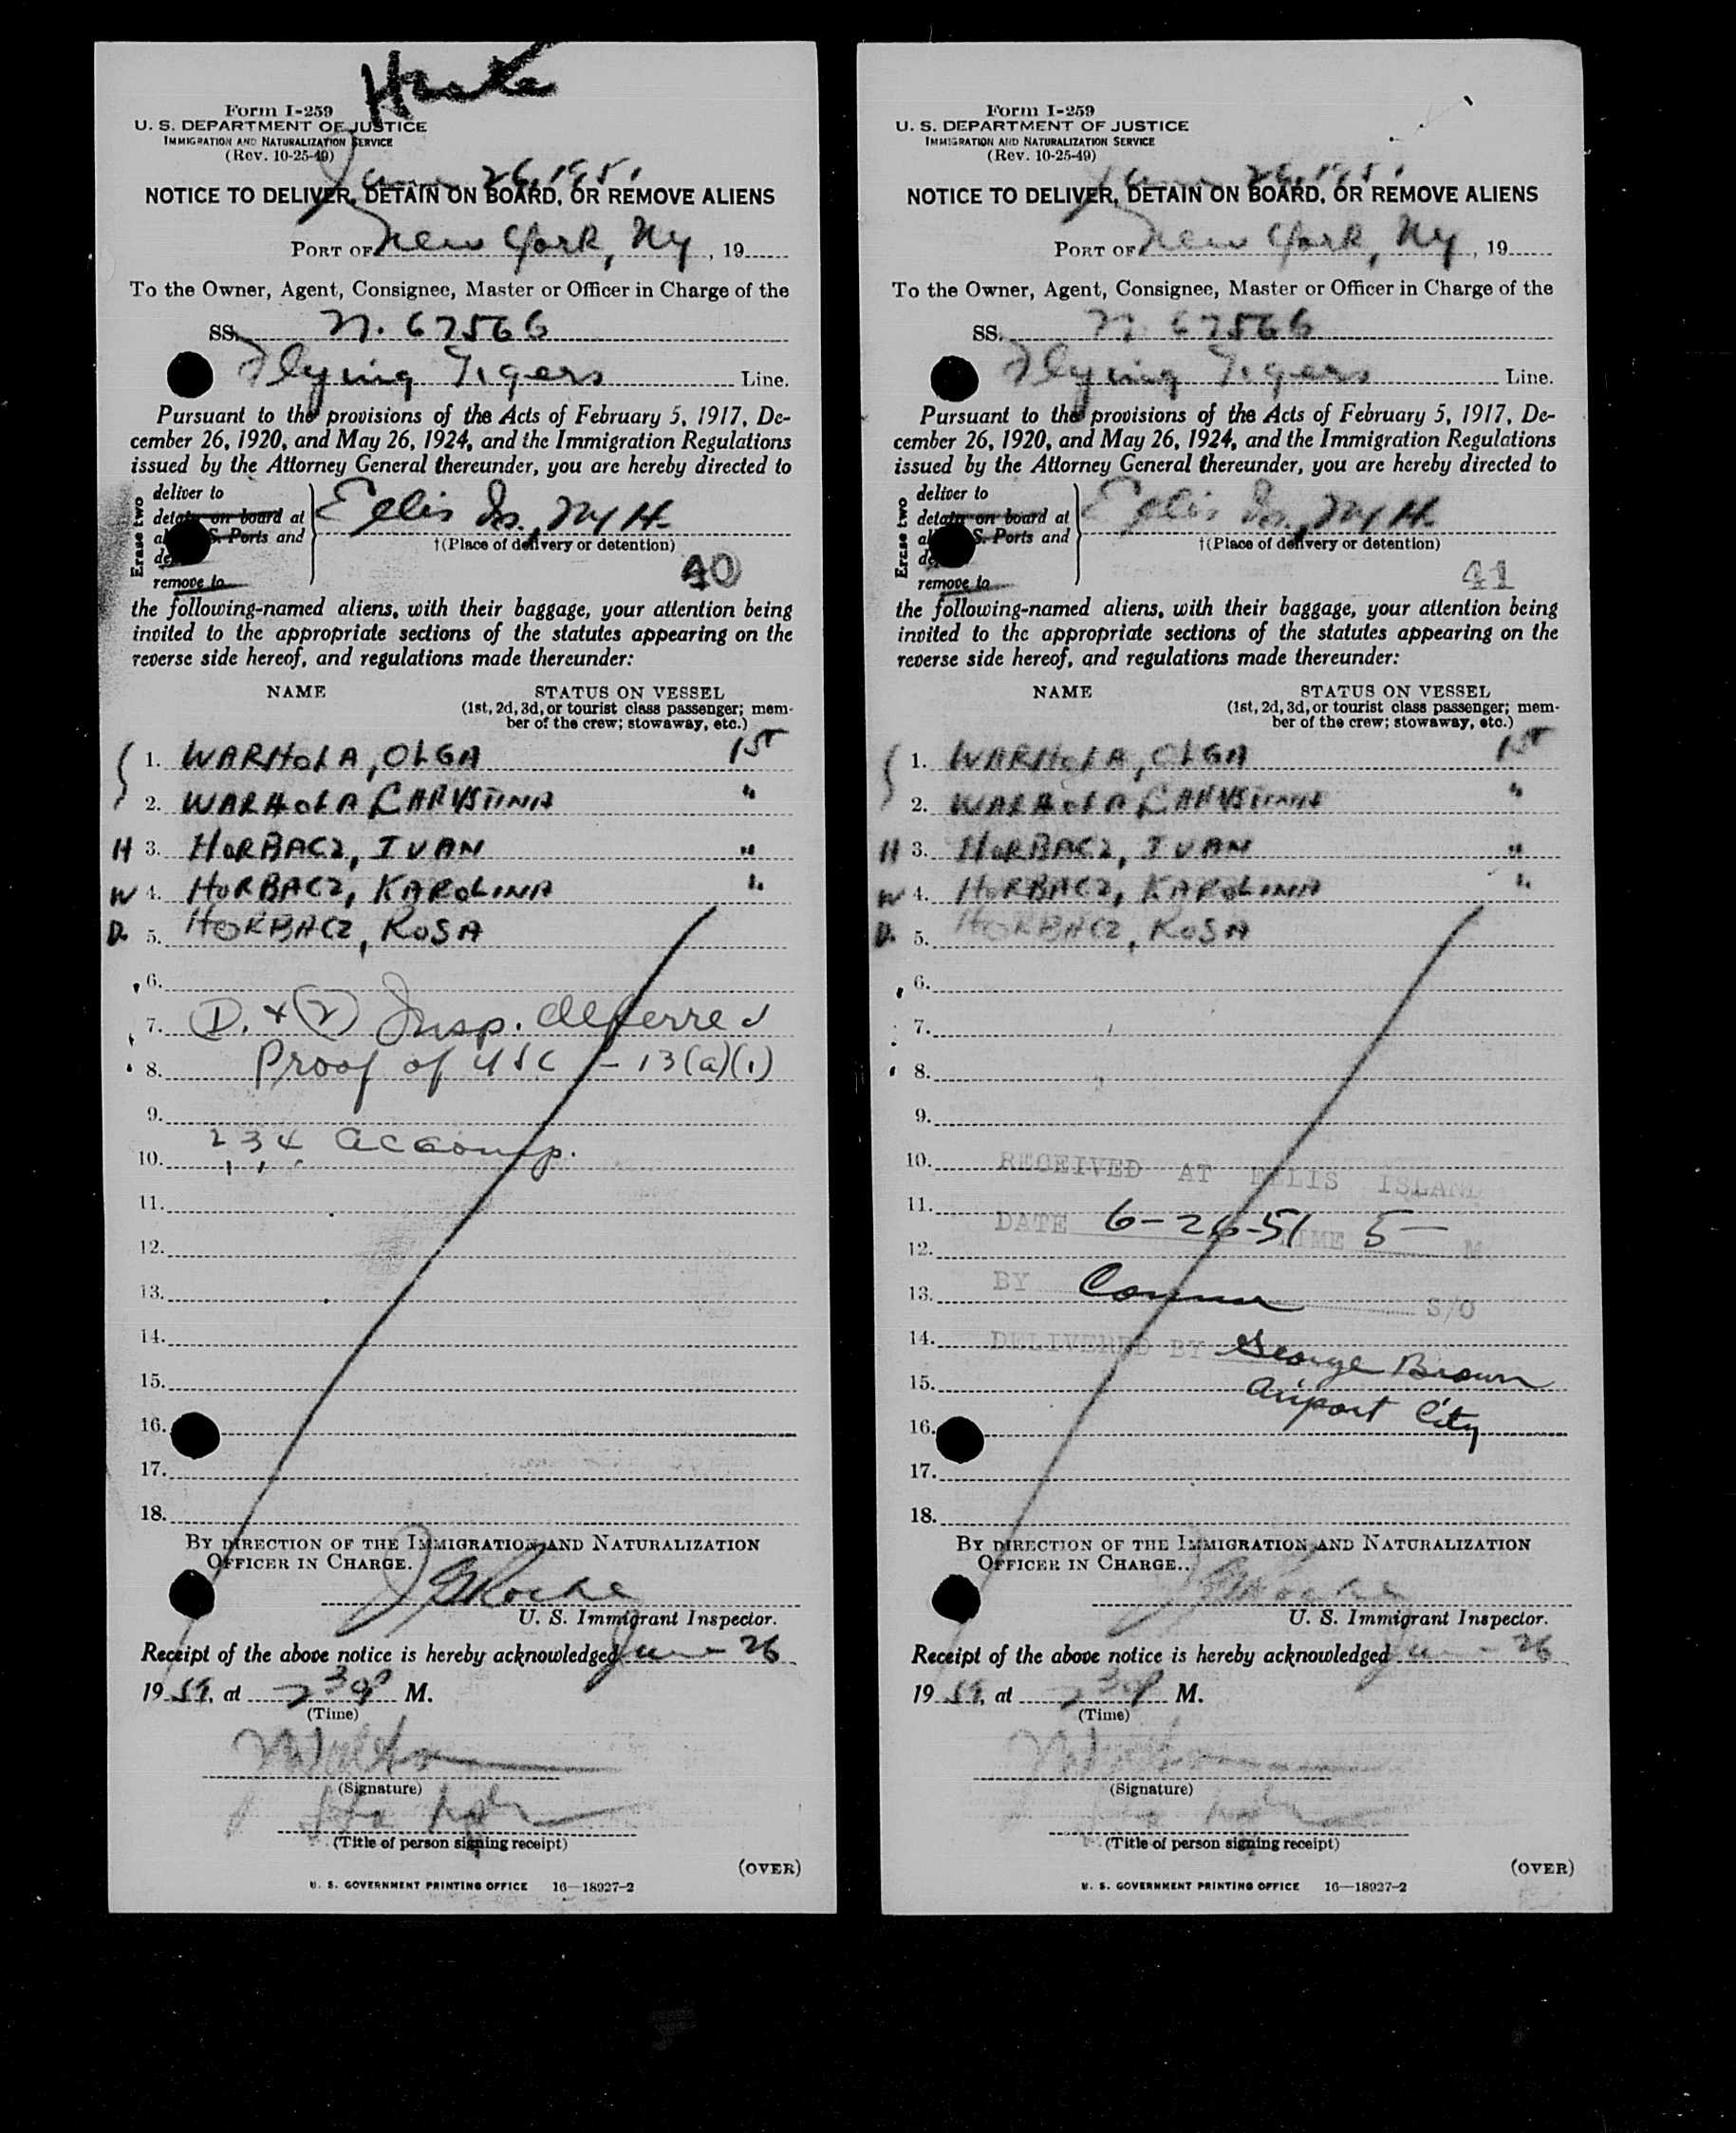 Form I-259
U. S. DEPARTMENT OF JUSTICE
IMMIGRATION AND NATURALIZATION SERVICE
(Rev. 10-25-49)
June 26, 1951
NOTICE TO DELIVER, DETAIN ON BOARD, OR REMOVE ALIENS
PORT OF New York, NY, 19
To the Owner, Agent, Consignee, Master or Officer in Charge of the
SS. N. 67566
Flying Tigers Line.
Pursuant to the provisions of the Acts of February 5, 1917, De-
cember 26, 1920, and May 26, 1924, and the Immigration Regulations
issued by the Attorney General thereunder, you are hereby directed to
Erase two
deliver to
detain on board at
S. Ports and
remove to
Ellis Is., NYH.
†(Place of delivery or detention)
40
the following-named aliens, with their baggage, your attention being
invited to the appropriate sections of the statutes appearing on the
reverse side hereof, and regulations made thereunder:
NAME STATUS ON VESSEL
(1st, 2d, 3d, or tourist class passenger; mem-
ber of the crew; stowaway, etc.)
1. WARHOLA, OLGA 1ST
2. WARHOLA, CHRYSTINA "
H 3. HORBACZ, IVAN "
W 4. HORBACZ, KAROLINA "
D. 5. HORBACZ, ROSA
6.
7. D. + (2) Insp. deferred
8. Proof of USC - 13(a)(1)
9.
10. 2, 3, 4 accomp.
11.
12.
13.
14.
15.
16.
17.
18.
BY DIRECTION OF THE IMMIGRATION AND NATURALIZATION
OFFICER IN CHARGE.
Roche
U. S. Immigrant Inspector.
Receipt of the above notice is hereby acknowledged June 26
1951, at 2 30 P M.
(Time)
(Signature)
(Title of person signing receipt)
(OVER)
U. S. GOVERNMENT PRINTING OFFICE 16—18927-2
Form I-259
U. S. DEPARTMENT OF JUSTICE
IMMIGRATION AND NATURALIZATION SERVICE
(Rev. 10-25-49)
June 26, 1951
NOTICE TO DELIVER, DETAIN ON BOARD, OR REMOVE ALIENS
PORT OF New York, NY, 19
To the Owner, Agent, Consignee, Master or Officer in Charge of the
SS. N. 67566
Flying Tigers Line.
Pursuant to the provisions of the Acts of February 5, 1917, De-
cember 26, 1920, and May 26, 1924, and the Immigration Regulations
issued by the Attorney General thereunder, you are hereby directed to
Erase two
deliver to
detain on board at
S. Ports and
remove to
Ellis Is., NYH.
†(Place of delivery or detention)
41
the following-named aliens, with their baggage, your attention being
invited to the appropriate sections of the statutes appearing on the
reverse side hereof, and regulations made thereunder:
NAME STATUS ON VESSEL
(1st, 2d, 3d, or tourist class passenger; mem-
ber of the crew; stowaway, etc.)
1. WARHOLA, OLGA 1ST
2. WARHOLA, CHRYSTINA "
H 3. HORBACZ, IVAN "
W 4. HORBACZ, KAROLINA "
D. 5. HORBACZ, ROSA
6.
7.
8.
9.
10. RECEIVED AT ELLIS ISLAND
11.
DATE 6-26-51 TIME 5— M.
12.
13. BY S/O
14. DELIVERED BY George Brown
15. Airport City
16.
17.
18.
BY DIRECTION OF THE IMMIGRATION AND NATURALIZATION
OFFICER IN CHARGE.
Roche
U. S. Immigrant Inspector.
Receipt of the above notice is hereby acknowledged June 26
1951, at 2 30 P M.
(Time)
(Signature)
(Title of person signing receipt)
(OVER)
U. S. GOVERNMENT PRINTING OFFICE 16—18927-2